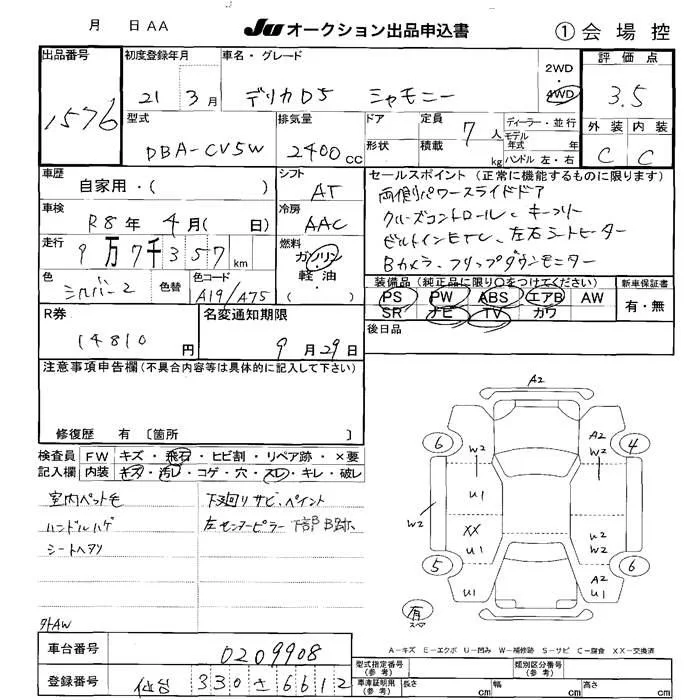 月 日 AA
JU オークション出品申込書
① 会場控
出品番号
1576
初度登録年月
21 3月
車名・グレード
デリカD5 シャモニー
2WD
・
4WD
評価点
3.5
外装 内装
C C
型式
DBA-CV5W
排気量
2400cc
ドア
形状
定員 7人
積載 kg
ディーラー・並行
モデル
年式 年
ハンドル 左・右
車歴
自家用・( )
シフト
AT
車検
R8年 4月( 日)
冷房
AAC
走行
9万7千357km
燃料
ガソリン
・
軽油
( )
色
シルバー2
色替
色コード
A19/A75
セールスポイント(正常に機能するものに限ります)
両側パワースライドドア
クルーズコントロール、キーフリー
ビルトインETC、左右シートヒーター
Bカメラ、フリップダウンモニター
装備品(純正品に限り○をつけてください)
PS PW ABS エアB AW
SR ナビ TV カワ
新車保証書
有・無
後日品
R券
14810円
名変通知期限
9月29日
注意事項申告欄(不具合内容等は具体的に記入して下さい)
修復歴 有 〔箇所 〕
検査員
記入欄
FW キズ・飛石・ヒビ割・リペア跡・×要
内装 キズ・汚レ・コゲ・穴・スレ・キレ・破レ
室内ペット毛
ハンドルハゲ
シートヘタリ
下廻りサビ、ペイント
左センターピラー下部B跡
外AW
A2
6 W2 A2 W2 4
U1
W2 XX U1
U2 W2 U1
5 A2 U1 6
有
スペア
A-キズ E-エクボ U-凹み W-補修跡 S-サビ C-腐食 XX-交換済
車台番号
0209908
登録番号
仙台 330 さ 6612
型式指定番号
(参考)
類別区分番号
(参考)
車庫証明用
(参考)
長さ cm 幅 cm 高さ cm